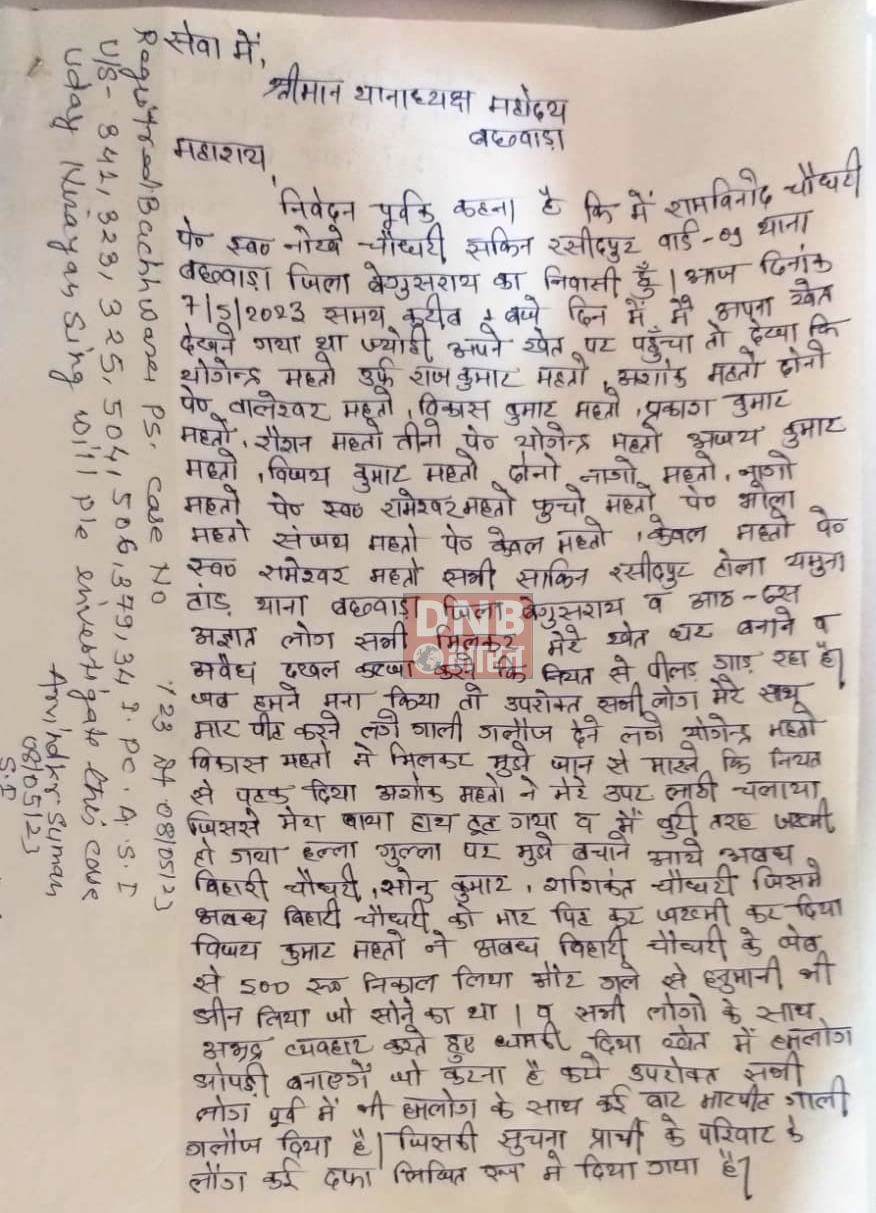 सेवा में,
श्रीमान थानाध्यक्ष महोदय
बछवाड़ा
महाशय,
निवेदन पूर्वक कहना है कि में रामविनोद चौधरी
पे० स्व० नोखे चौधरी साकिन रसीदपुर वार्ड-09 थाना
बछवाड़ा जिला बेगुसराय का निवासी हुँ। आज दिनांक
7/5/2023 समय करीब बजे दिन में मै अपना खेत
देखने गया था ज्योही अपने खेत पर पहुँचा तो देखा कि
योगेन्द्र महतो उर्फ राज कुमार महतो, अशोक महतो दोनो
पे० वालेश्वर महतो, विकास कुमार महतो, प्रकाश कुमार
महतो, रौशन महतो तीनो पे० योगेन्द्र महतो अजय कुमार
महतो, विजय कुमार महतो दोनो नागो महतो, नागो
महतो पे० स्व० रामेश्वर महतो फुचो महतो पे० भोला
महतो संजय महतो पे० केवल महतो, केवल महतो पे०
स्व० रामेश्वर महतो सभी साकिन रसीदपुर टोला यमुना
टांड़ थाना बछवाड़ा जिला बेगुसराय व आठ-दस
अज्ञात लोग सभी मिलकर मेरे खेत घर बनाने व
अवैध दखल कब्जा करने कि नियत से पीलड़ गाड़ रहा है।
जब हमने मना किया तो उपरोक्त सभी लोग मेरे साथ
मार पीट करने लगे गाली गलौज देने लगे योगेन्द्र महतो
विकास महतो ने मिलकर मुझे जान से मारने कि नियत
से पटक दिया अशोक महतो ने मेरे उपर लाठी चलाया
जिससे मेरा बाया हाथ टुट गया व में बुरी तरह जख्मी
हो गया हल्ला गुल्ला पर मुझे बचाने आये अवध
बिहारी चौधरी, सोनु कुमार, शशिकंत चौधरी जिसमे
अवध बिहारी चौधरी को मार पिट कर जख्मी कर दिया
विजय कुमार महतो ने अवध बिहारी चौधरी के जेब
से 500 रू० निकाल लिया और गले से हनुमानी भी
छीन लिया जो सोने का था। व सभी लोगो के साथ
अभद्र व्यवहार करते हुए धमकी दिया खेत में हमलोग
झोपड़ी बनाएगें जो करना है करो उपरोक्त सभी
लोग पूर्व में भी हमलोग के साथ कई बार मारपीट गाली
गलौज दिया है। जिसकी सुचना प्रार्थी के परिवार के
लौग कई दफा लिखित रूप मे दिया गया है।
Registred Bachhwara PS. Case No /23 dt 08/05/23
U/S- 341, 323, 325, 504, 506, 379, 34 I.PC. A.S.I
Uday Narayan Sing will Ple envestigate this case
08/05/23
S.I
DNB
भारत